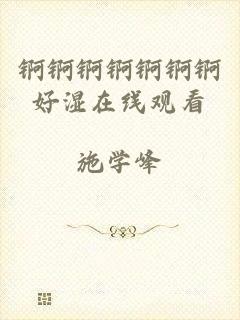 锕锕锕锕锕锕锕
好湿在线观看
施学峰